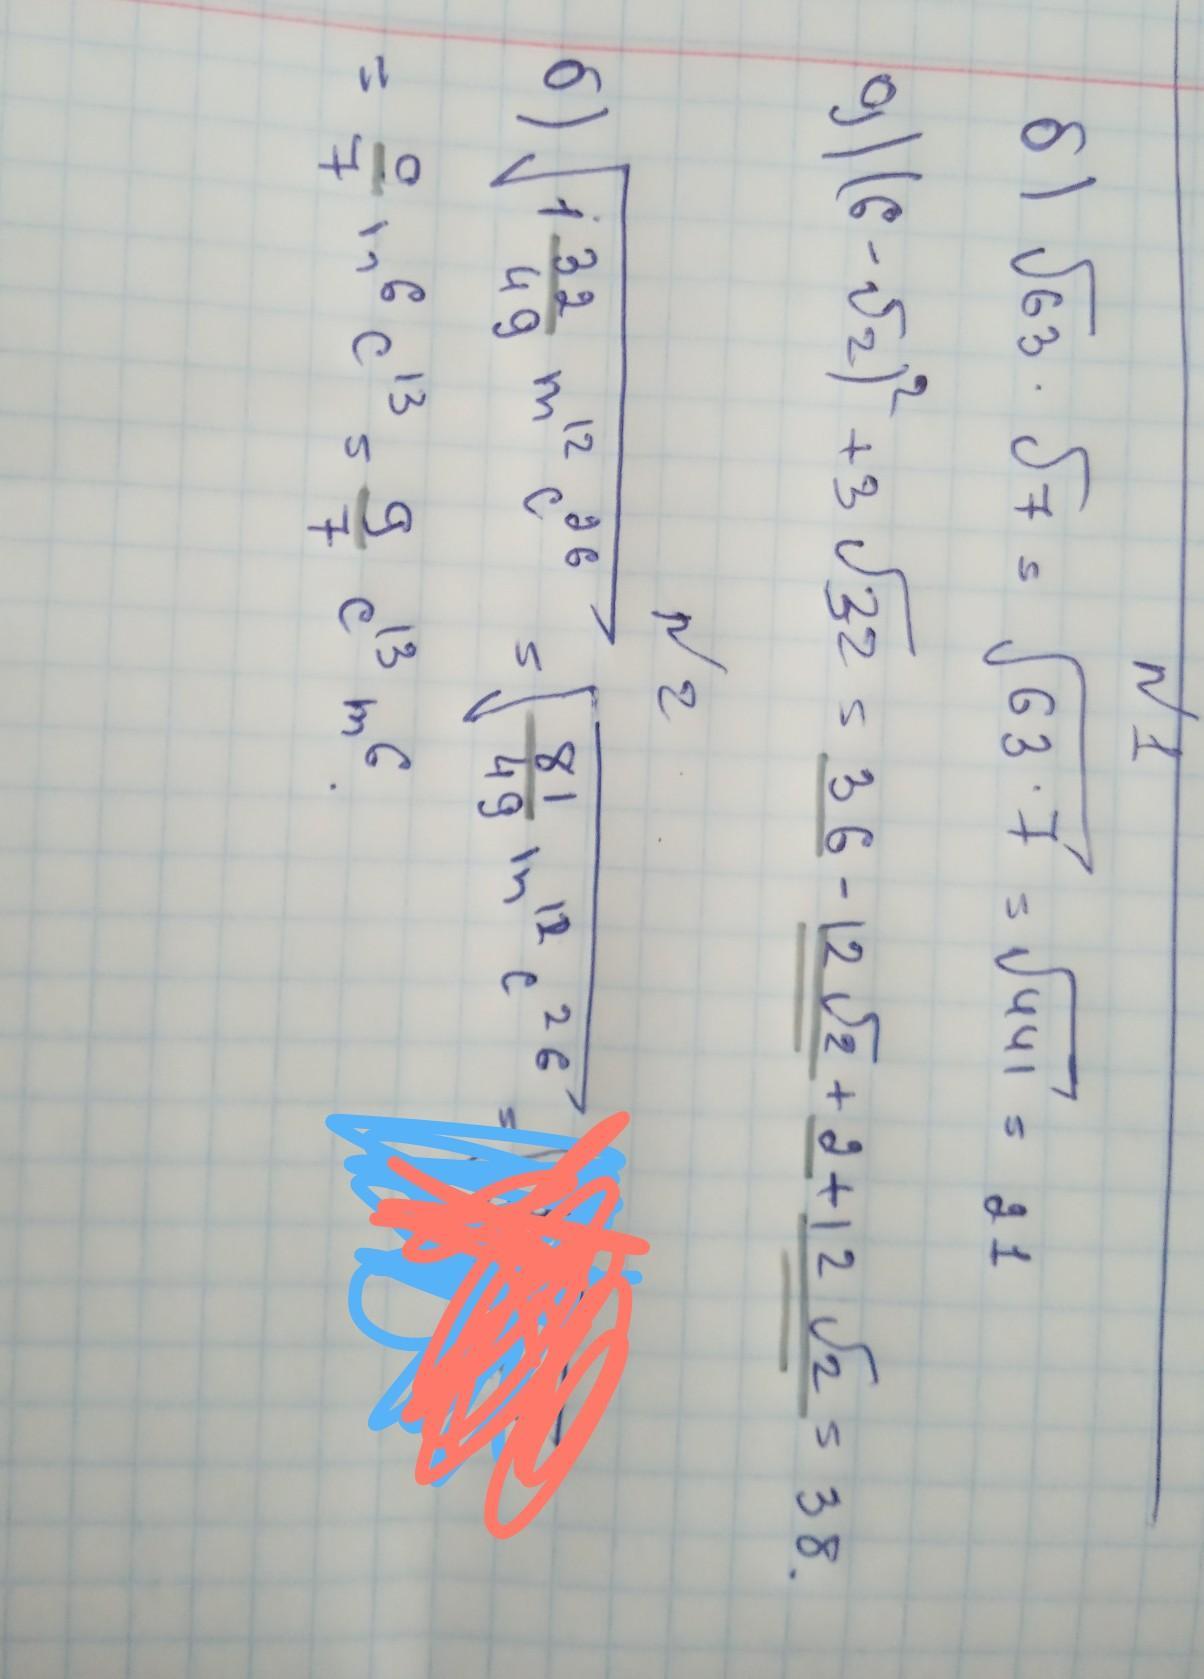 N 1
б) √63 · √7 = √63·7 = √441 = 21
д) (6 - √2)² + 3√32 = 36 - 12√2 + 2 + 12√2 = 38.
N 2
б) √1 32/49 m¹² c²⁶ = √81/49 m¹² c²⁶ =
= 9/7 m⁶ c¹³ = 9/7 c¹³ m⁶.